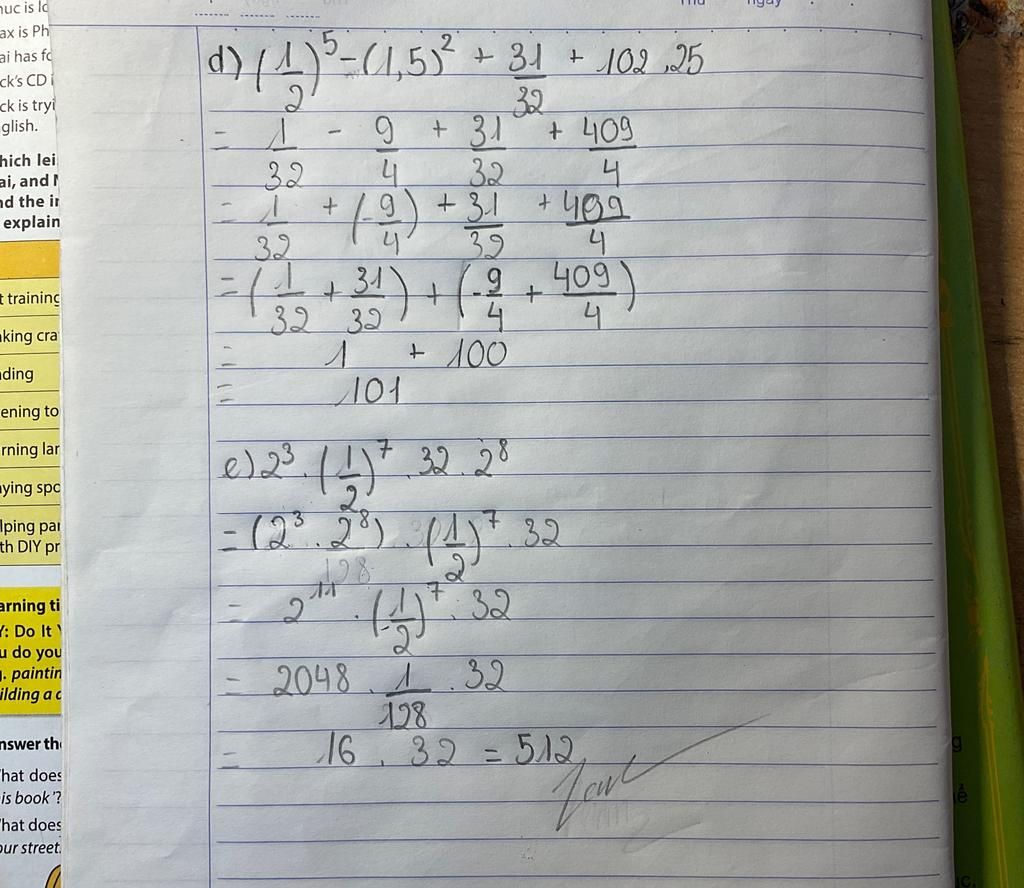 Thứ
ngày
uc is lo
ax is Ph
ai has fo
ck's CD i
ck is tryi
glish.
hich lei
ai, and N
nd the in
explain
t training
king cra
ding
ening to
rning lar
ying spo
lping par
th DIY pr
arning ti
Y: Do It Y
u do you
g. paintin
ilding a d
nswer the
hat does
is book'?
hat does
our street
d) (1/2)^5 - (1,5)^2 + 31/32 + 102,25
= 1/32 - 9/4 + 31/32 + 409/4
= 1/32 + (-9/4) + 31/32 + 409/4
= (1/32 + 31/32) + (-9/4 + 409/4)
= 1 + 100
= 101
e) 2^3 . (1/2)^7 . 32 . 2^8
= (2^3 . 2^8) . (1/2)^7 . 32
128
= 2^11 . (1/2)^7 . 32
= 2048 . 1/128 . 32
= 16 . 32 = 512